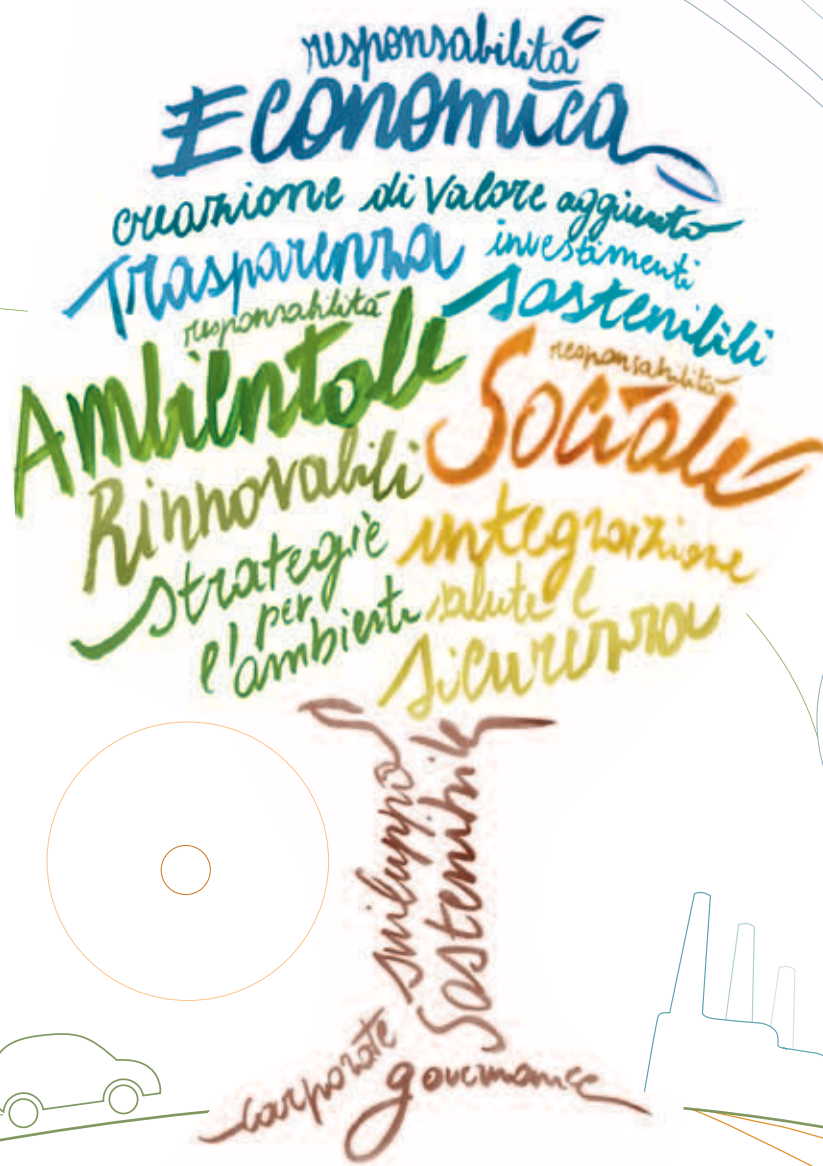 responsabilità
Economica
creazione di valore aggiunto
Trasparenza
investimenti
sostenibili
responsabilità
Ambientale
responsabilità
Sociale
Rinnovabili
integrazione
strategie
per
l'ambiente
salute e
sicurezza
sviluppo
sostenibile
corporate
governance